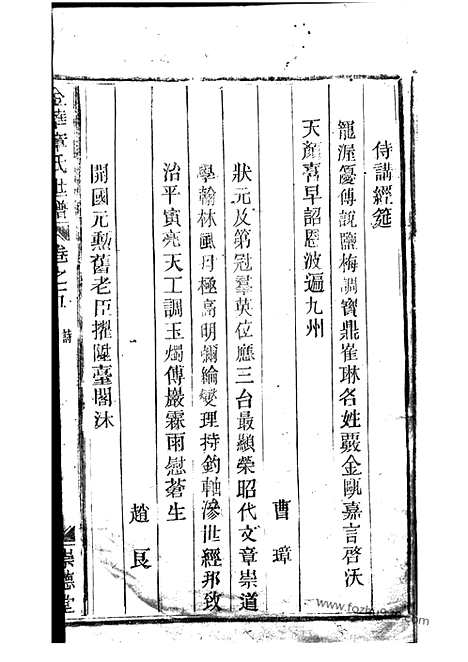 侍講經筵
寵渥優傅說鹽梅調寶鼎崔琳名姓覆金甌嘉言啓沃
天顏喜早詔恩波遍九州
曹璋
狀元及第冠羣英位應三台最顯榮昭代文章崇道
學翰林風月極高明彌綸燮理持鈞軸濟世經邦致
治平寅亮天工調玉燭傅巖霖雨慰蒼生
趙艮
開國元勲舊老臣擢陞臺閣沐
金華章氏世譜
卷之五
詩
崇德堂